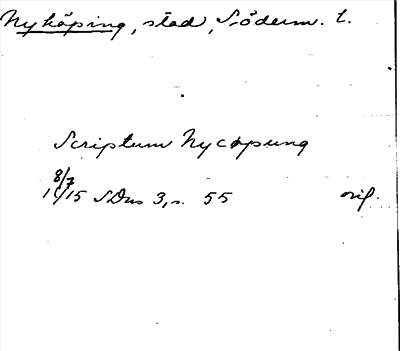 Nyköping, stad, Söderm. l.
Scriptum Nycopung
8/7
1415 SDns 3, s. 55 orig.